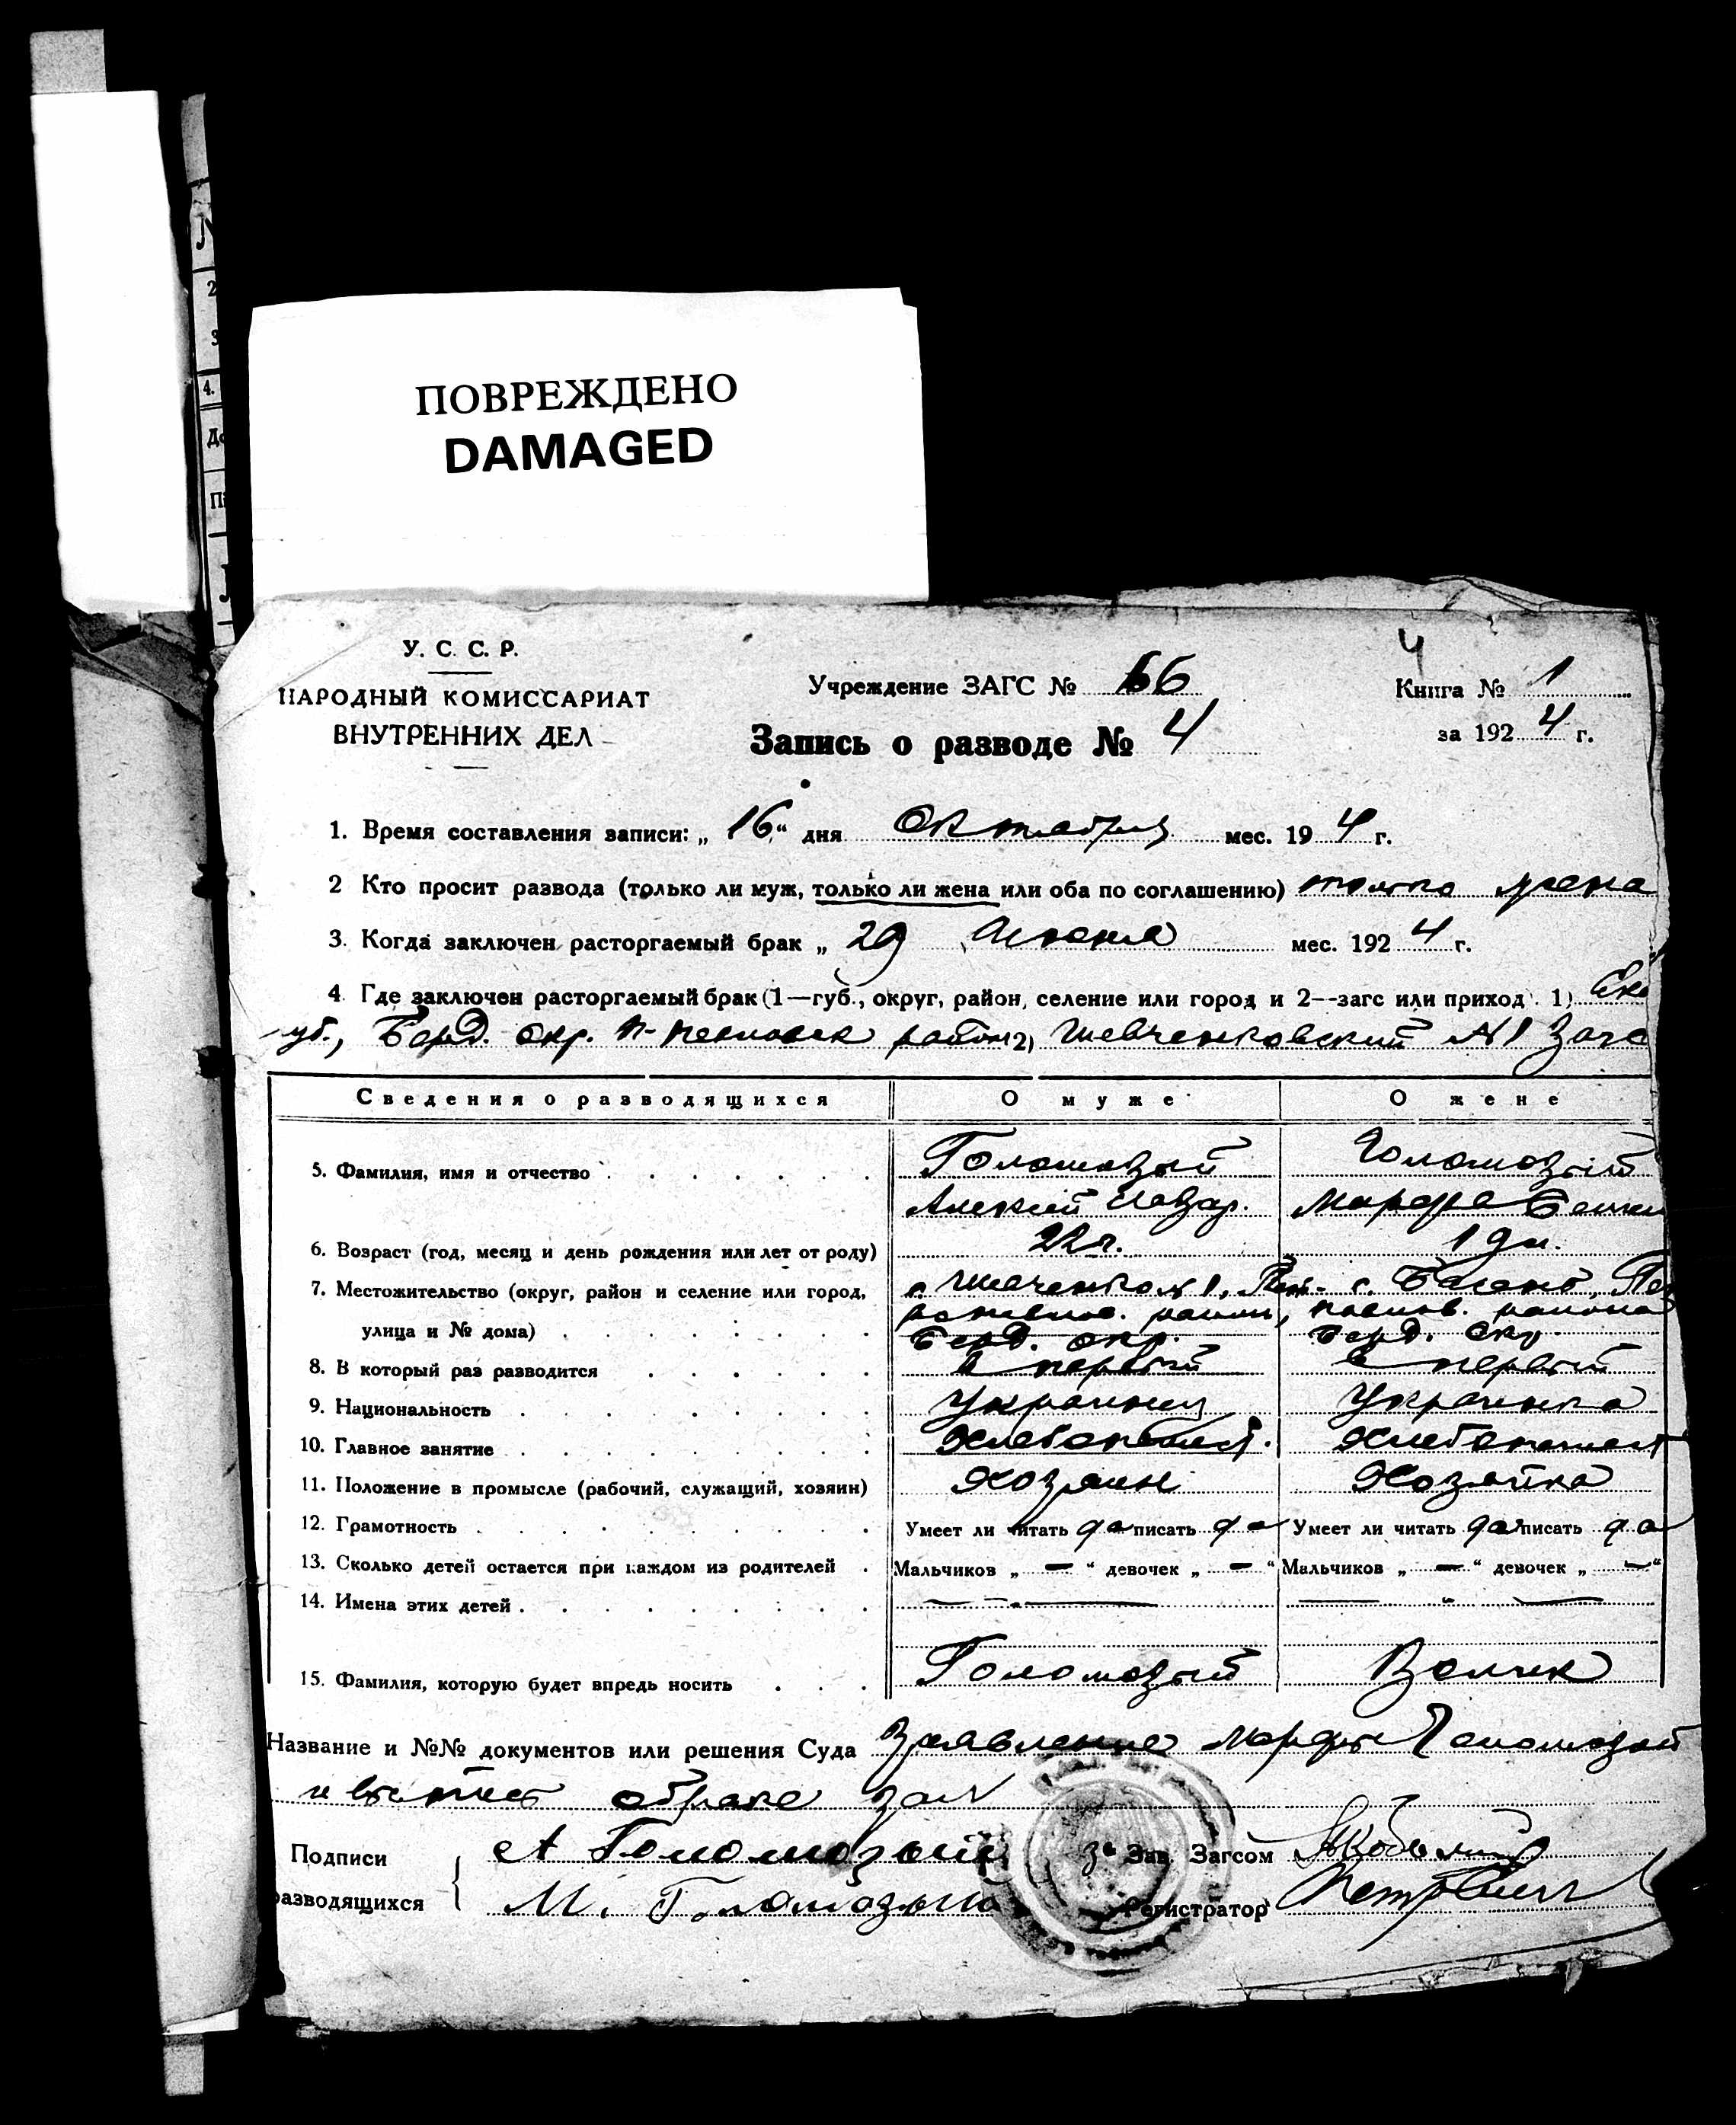 ПОВРЕЖДЕНО
DAMAGED
У. С. С. Р.
НАРОДНЫЙ КОМИССАРИАТ
ВНУТРЕННИХ ДЕЛ
4
Учреждение ЗАГС №
Книга № 1
Запись о разводе № 4
за 1924 г.
1. Время составления записи: „16“ дня Октября мес. 194 г.
2 Кто просит развода (только ли муж, только ли жена или оба по соглашению) только жена
3. Когда заключен расторгаемый брак „29 мес. 1924 г.
4. Где заключен расторгаемый брак (1—губ., округ, район, селение или город и 2—загс или приход). 1) Ека
губ., Берд. окр. район 2) Шевченковский №1 Загс
Сведения о разводящихся О муже О жене
5. Фамилия, имя и отчество Голомозый Голомозый
Алексей Назар. Марфа
6. Возраст (год, месяц и день рождения или лет от роду) 22 г.
7. Местожительство (округ, район и селение или город, с. №1, с.
улица и № дома) район, района
Берд. окр. Берд. окр.
8. В который раз разводится в первый в первый
9. Национальность Украинец Украинка
10. Главное занятие Хлебопашест. Хлебопашест
11. Положение в промысле (рабочий, служащий, хозяин) Хозяин Хозяйка
12. Грамотность Умеет ли читать да писать да Умеет ли читать да писать да
13. Сколько детей остается при каждом из родителей Мальчиков „ — “ девочек „ — “ Мальчиков „ — “ девочек „ — “
14. Имена этих детей — —
15. Фамилия, которую будет впредь носить Голомозый Волчек
Название и №№ документов или решения Суда Заявление Марфы Голомозый
и о браке
Подписи А Голомозый за Зав. Загсом
разводящихся М. Голомозый Регистратор